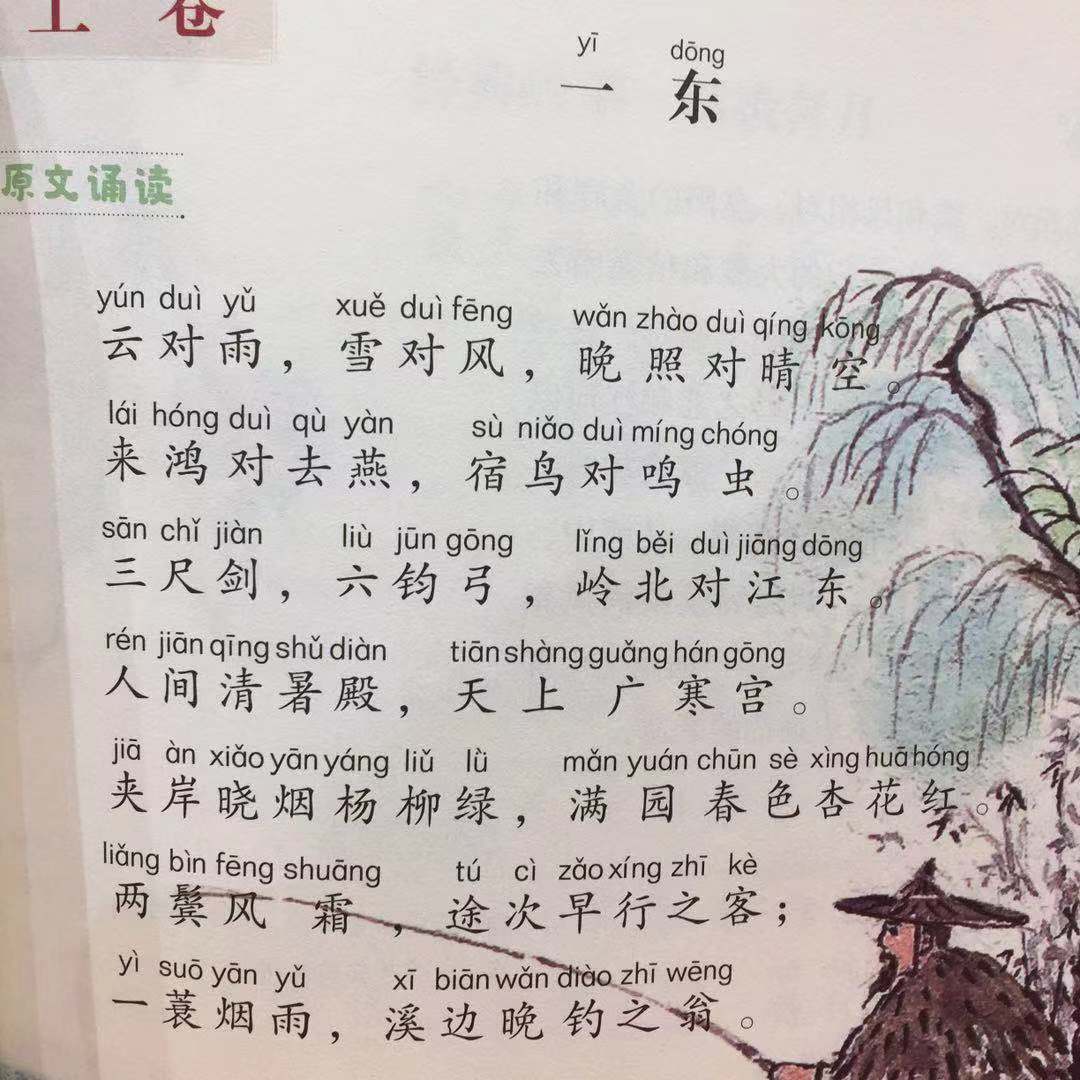 上卷
yī dōng
一 东
原文诵读
yún duì yǔ xuě duì fēng wǎn zhào duì qíng kōng
云对雨，雪对风，晚照对晴空。
lái hóng duì qù yàn sù niǎo duì míng chóng
来鸿对去燕，宿鸟对鸣虫。
sān chǐ jiàn liù jūn gōng lǐng běi duì jiāng dōng
三尺剑，六钧弓，岭北对江东。
rén jiān qīng shǔ diàn tiān shàng guǎng hán gōng
人间清暑殿，天上广寒宫。
jiā àn xiǎo yān yáng liǔ lǜ mǎn yuán chūn sè xìng huā hóng
夹岸晓烟杨柳绿，满园春色杏花红。
liǎng bìn fēng shuāng tú cì zǎo xíng zhī kè
两鬓风霜，途次早行之客；
yì suō yān yǔ xī biān wǎn diào zhī wēng
一蓑烟雨，溪边晚钓之翁。